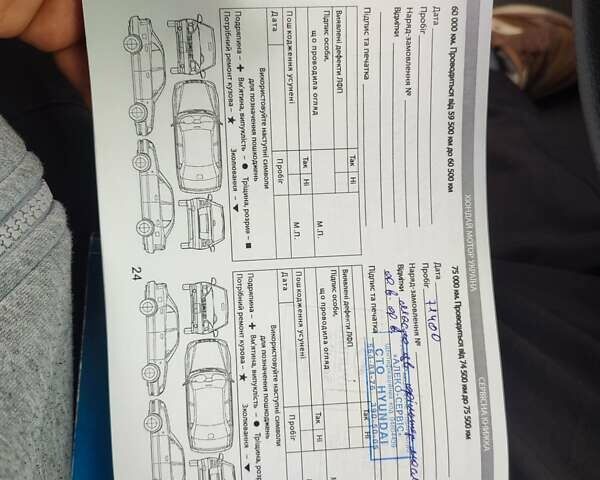 ХЮНДАЙ МОТОР УКРАЇНА
60 000 км. Проводиться від 59 500 км до 60 500 км
Дата
Пробіг
Наряд-замовлення №
Відмітки
Підпис та печатка
М.П.
Виявлені дефекти ЛФП Так Ні
Підпис особи,
що проводила огляд
М.П.
Пошкодження усунені Так Ні
Дата Пробіг
Використовуйте наступні символи
для позначення пошкоджень
Подряпина – + Вм'ятина, випуклість – ● Тріщина, розрив – ■
Потрібний ремонт кузова – ★ Зколювання – ▼
24
СЕРВІСНА КНИЖКА
75 000 км. Проводиться від 74 500 км до 75 500 км
Дата
Пробіг 71400
Наряд-замовлення №
Відмітки
Підпис та печатка
"АЛЕКО-СЕРВІС"
СТО HYUNDAI
Виявлені дефекти ЛФП Так
Підпис особи,
що проводила огляд
Пошкодження усунені Так Ні
Дата Пробіг
Використовуйте наступні символи
для позначення пошкоджень
Подряпина – + Вм'ятина, випуклість – ● Тріщина, розри
Потрібний ремонт кузова – ★ Зколювання –